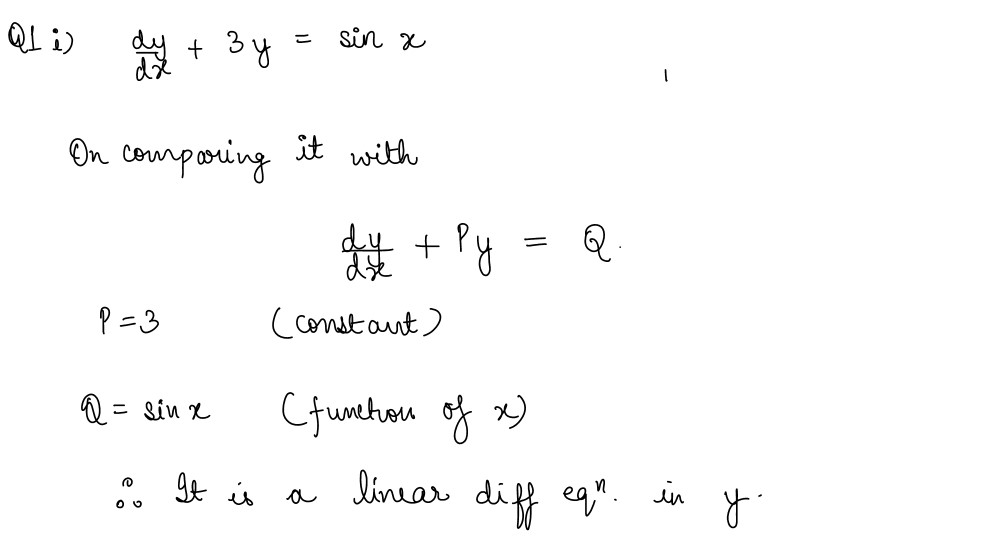 Q1 i) dy/dx + 3y = sin x
On comparing it with
dy/dx + Py = Q.
P = 3 (constant)
Q = sin x (function of x)
∴ It is a linear diff eqⁿ. in y.